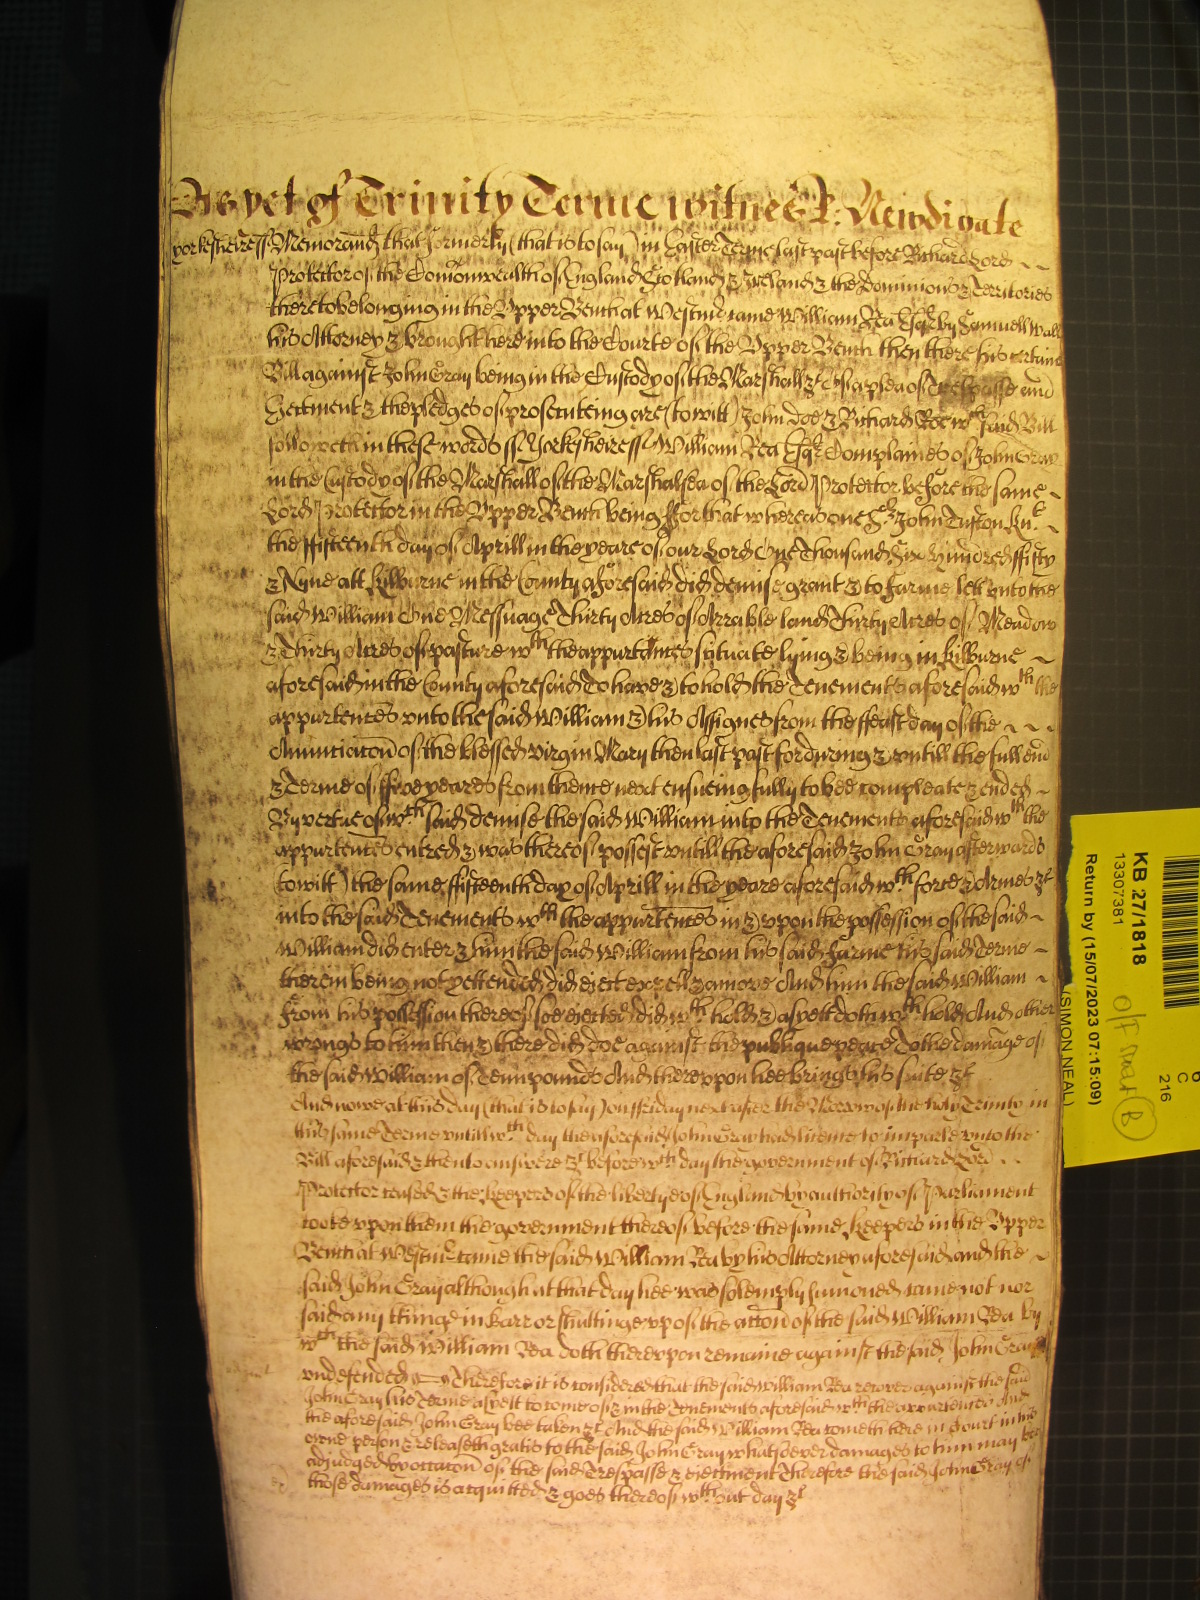 As yet of Trinity Terme witnes R: Newdigate
yorkesheire ss Memorand that formerly (that is to say) in Easter Terme last past before Richard Lord
Protector of the Comonwealth of England Scotland & Ireland & the Dominions & Territories
thereto belonging in the Upper Bench at Westmr came William Rea Esqr by Samuell Wall
his Attorney & brought here into the Courte of the Upper Bench then there his certaine
Bill against John Gray being in the Custody of the Marshall &c of a plea of Trespasse and
Eiectment & the pledges of prosecuteing are (to witt) John doe & Richard Roe wch said Bill
followeth in these words ss Yorkesheire ss William Rea Esqr Complaines of John Gray
in the Custody of the Marshall of the Marshalsea of the Lord Protector before the same
Lord Protector in the Upper Bench being For that whereas one Sr John Tufton Knt
the ffifteenth day of Aprill in the yeare of our Lord One Thousand Six Hundred ffifty
& Nyne att Kilburne in the County aforesaid did demise grant & to farme lett unto the
said William One Messuage Thirty Acres of Arrable land Thirty Acres of Meadow
& Thirty Acres of pasture wth the appurtences scituate lying & being in Kilburne
aforesaid in the County aforesaid To have & to hold the Tenements aforesaid wth the
appurtences unto the said William & his Assignes from the ffeast day of the
Anunciacon of the blessed virgin Mary then last past for during & untill the full end
& Terme of ffive yeares from thence next ensueing fully to bee compleate & ended
By vertue of wch said demise the said William into the Tenements aforesaid wth the
appurtences entred & was thereof possest untill the aforesaid John Gray afterwards
(to witt) the same ffifteenth day of Aprill in the yeare aforesaid wth force & Armes &c
into the said Tenements wth the appurtences in & upon the possession of the said
William did enter & him the said William from his said farme his said Terme
therein being not yett ended did eject expell & amove And him the said William
From his possession thereof soe ejected did wth hold & as yett doth wth hold And other
wrongs to him then & there did doe against the publique peace To the damage of
the said William of Tenn pounds And thereupon hee brings his suite &c
And nowe at this day (that is to say) on ffriday next after the Morrow of the holy Trinity in
this same Terme untill wch day the aforesaid John Gray had licence to imparle unto the
Bill aforesaid & then to answere &c before wch day the government of Richard Lord
Protector ceased & the Keepers of the libertye of England by authority of Parliament
tooke upon them the government thereof before the same Keepers in the Upper
Bench at Westmr came the said William Rea by his Attorney aforesaid and the
said John Gray although at that day hee was solemply sumoned came not nor
said any thinge in barr or shuttinge up of the accon of the said William Rea by
wch the said William Rea doth thereupon remaine against the said John Gray
undefended Therefore it is considered that the said William Rea recover against the said
John Gray his Terme as yett to come of & in the Tenements aforesaid wth the appurtences And
the aforesaid John Gray bee taken &c And the said William Rea cometh here in Court in his
owne person & releaseth gratis to the said John Gray whatsoever damages to him may bee
adjudged by occacon of the said Trespasse & ejectment Therefore the said John Gray of
those damages is acquitted & goes thereof wthout day &c
KB 27/1818
13307381
Return by (15/07/2023 07:15:09)
(SIMON NEAL)
C
216
B